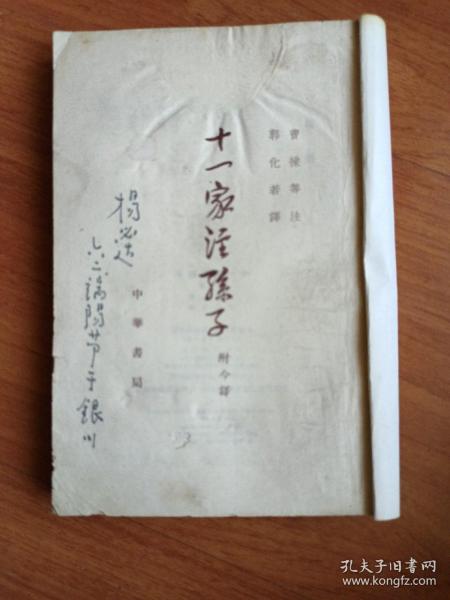 曹操等注
郭化若譯
十一家注孫子
附今譯
中華書局
楊
六二端陽节于銀川
孔夫子旧书网
www.kongfz.com